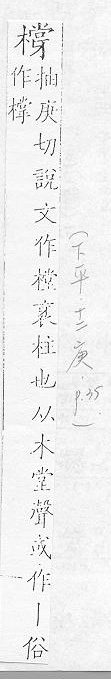 橕
抽庚切說文作樘衺柱也从木堂聲或作丨俗
作撐
(下平・十二庚 p.35)